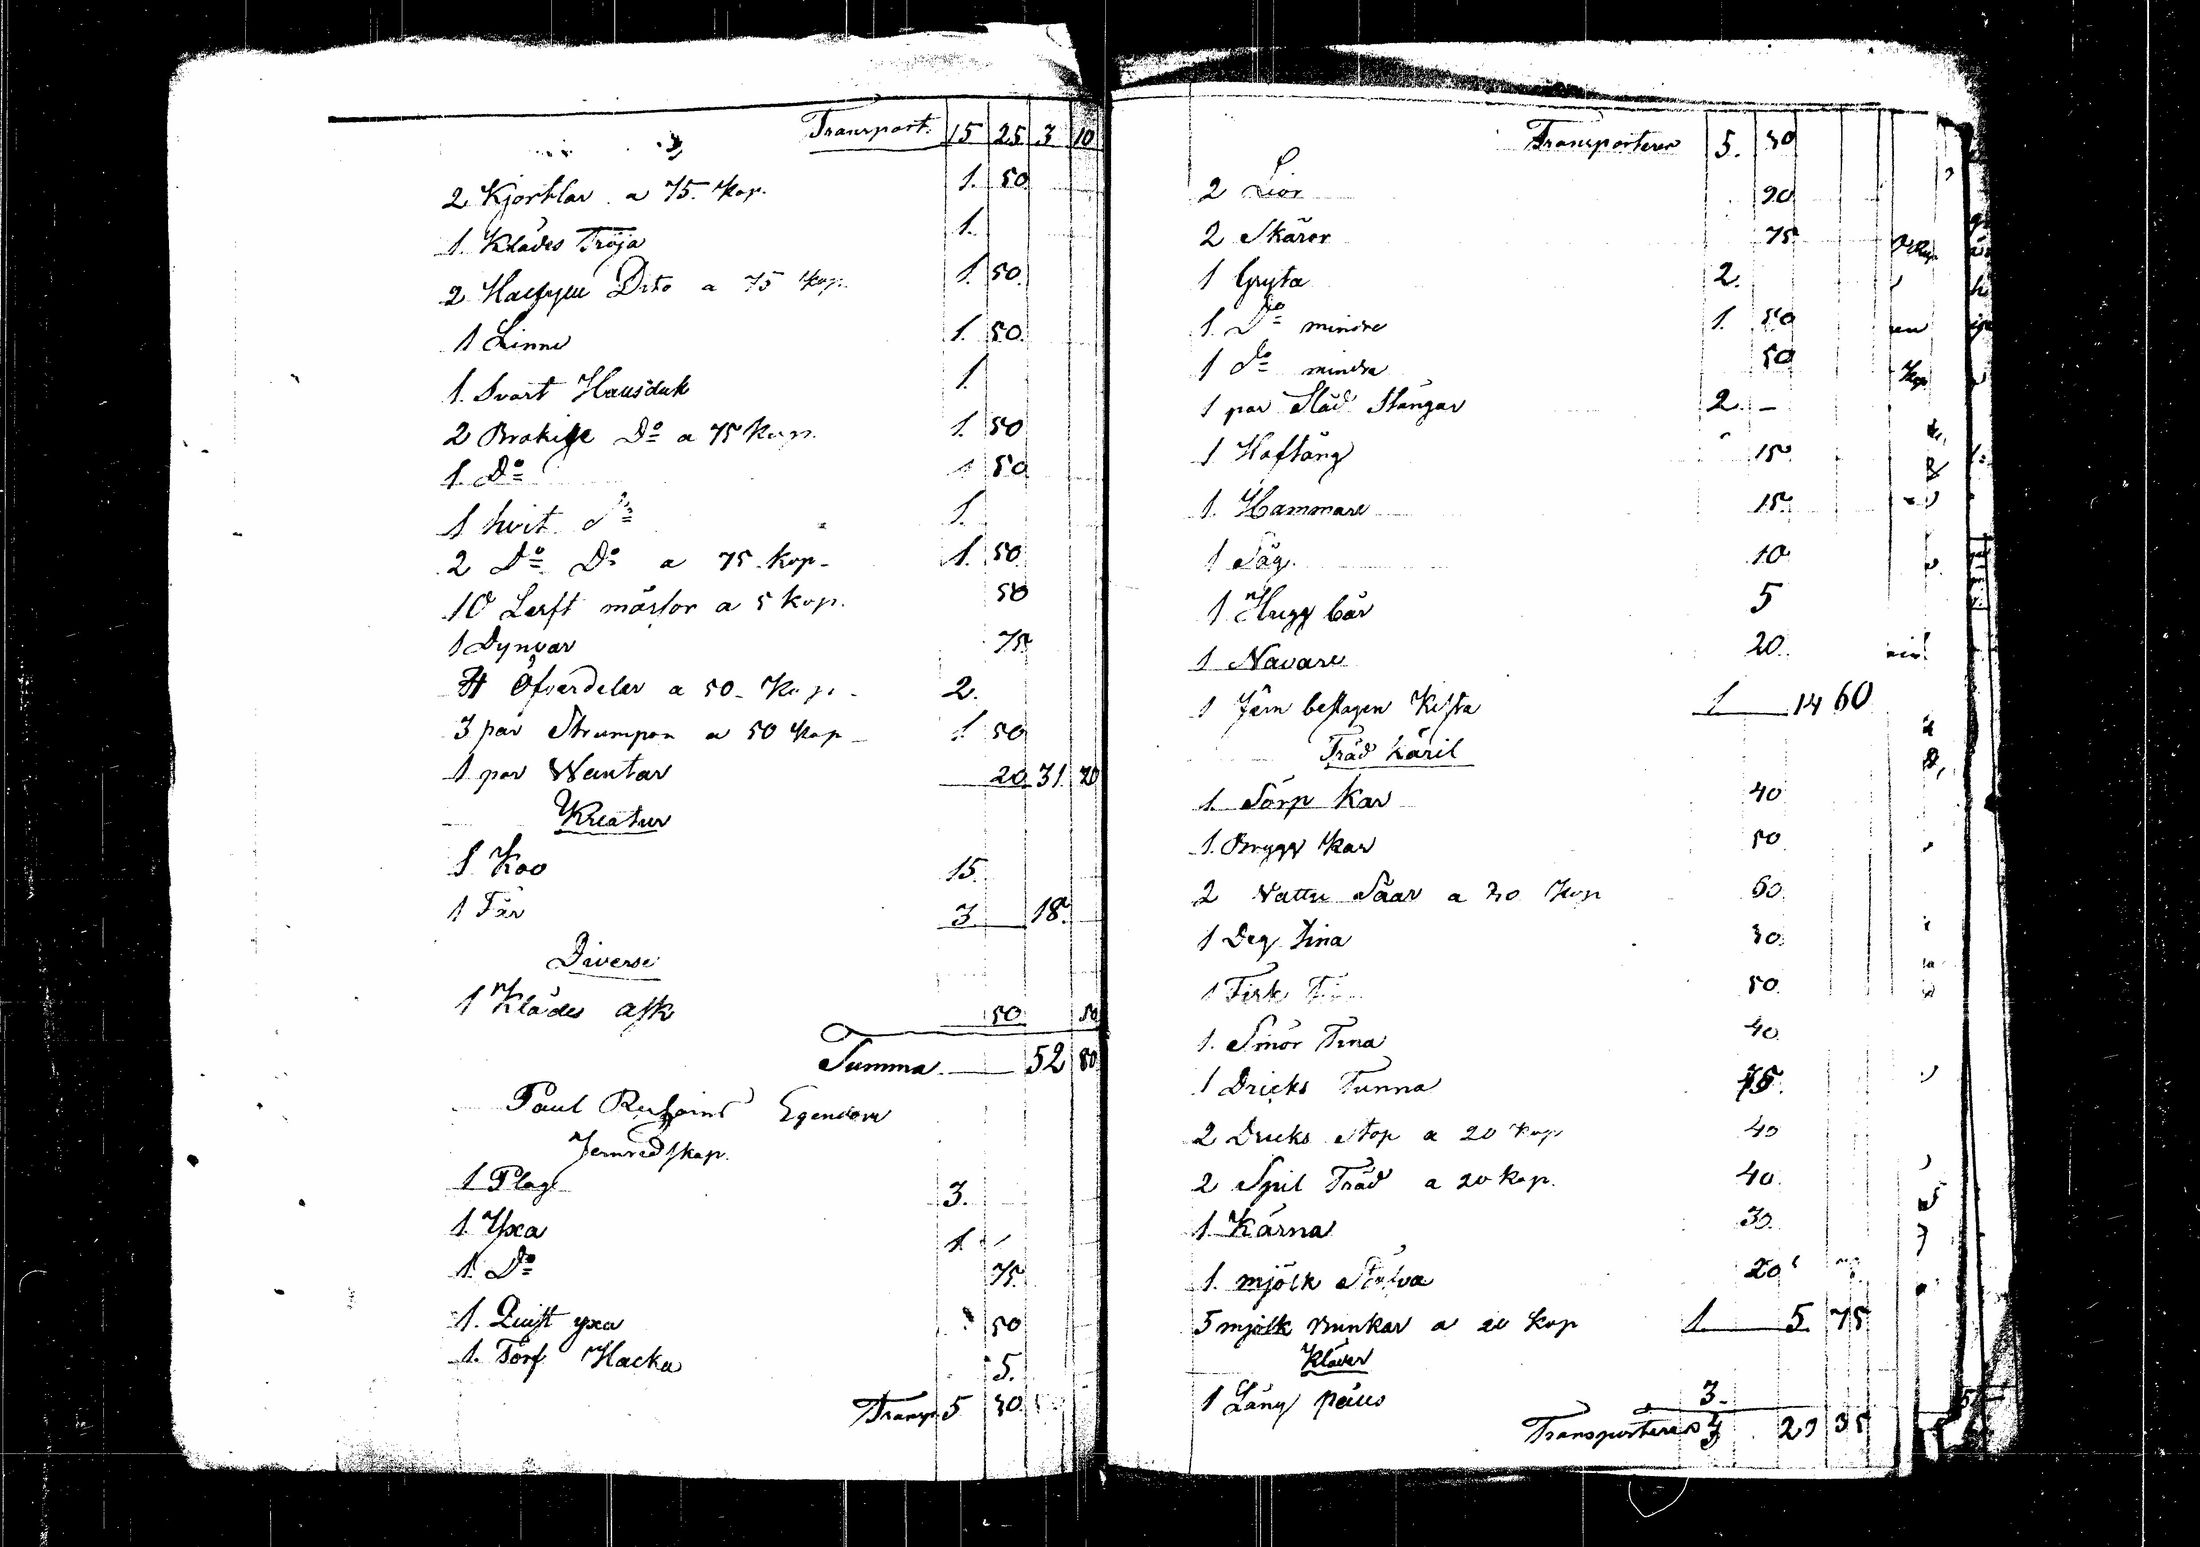 Transport. 15 25 3 10
2 Kjortlar a 75. Kop. 1. 50
1. Klädes Tröja 1.
2 Dito a 75 Kop. 1. 50.
1 Linne 1. 50.
1. Svart Hausduk 1.
2 Brokige Do a 75 Kop. 1. 50
1. Do 1 50
1 hvit do 1.
2 Do Do a 75. Kop. 1. 50.
10 Lerft a 5 Kop. 50
1 Dynvar 75
4 Öfverdelar a 50 Kop. 2.
3 par Strumpor a 50 Kop 1 50
1 par Wantar 20. 31. 20
Kreatur
1 Koo 15.
1 Får 3. 18.
Diverse
1 Klädes ask 50 50
Summa 52 80
Paul Egendom
Jernredskap.
1 Plog 3.
1. Yxa 1.
1. Do 75.
1. Quist yxa 50
1. Torf Hacka 5.
Transp. 5 30
Transporteres 5. 30
2 Liar 90
2 Skäror 75
1 Gryta 2.
1. Do mindre 1. 50
1 do mindre 50
1 par Släd Stänger 2. –
1 Hoftång 15
1. Hammare 15
1 Såg. 10
1 Hugg bår 5
1 Navare 20.
1 Järn beslagen Kista 1 14 60
Träd käril
1. Sörp Kar 40
1. Brygg Kar 50
2 Vattu Såar a 30 Kop 60
1 Deg tina 30.
1 Fisk 50
1. Smör Tina 40
1 Dricks Tunna 75.
2 Dricks Stop a 20 Kop 40
2 Spil Träd a 20 Kop. 40.
1. Kärna 30.
1. mjölk 20
5 mjölk Bunkar a 20 Kop 1. 5 75
Kläder
1 Lång päls 3.
Transporteres 3 20 35